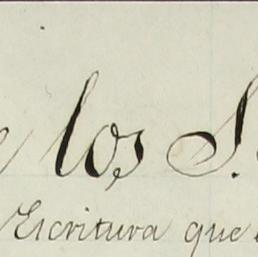 los S.
Escritura que